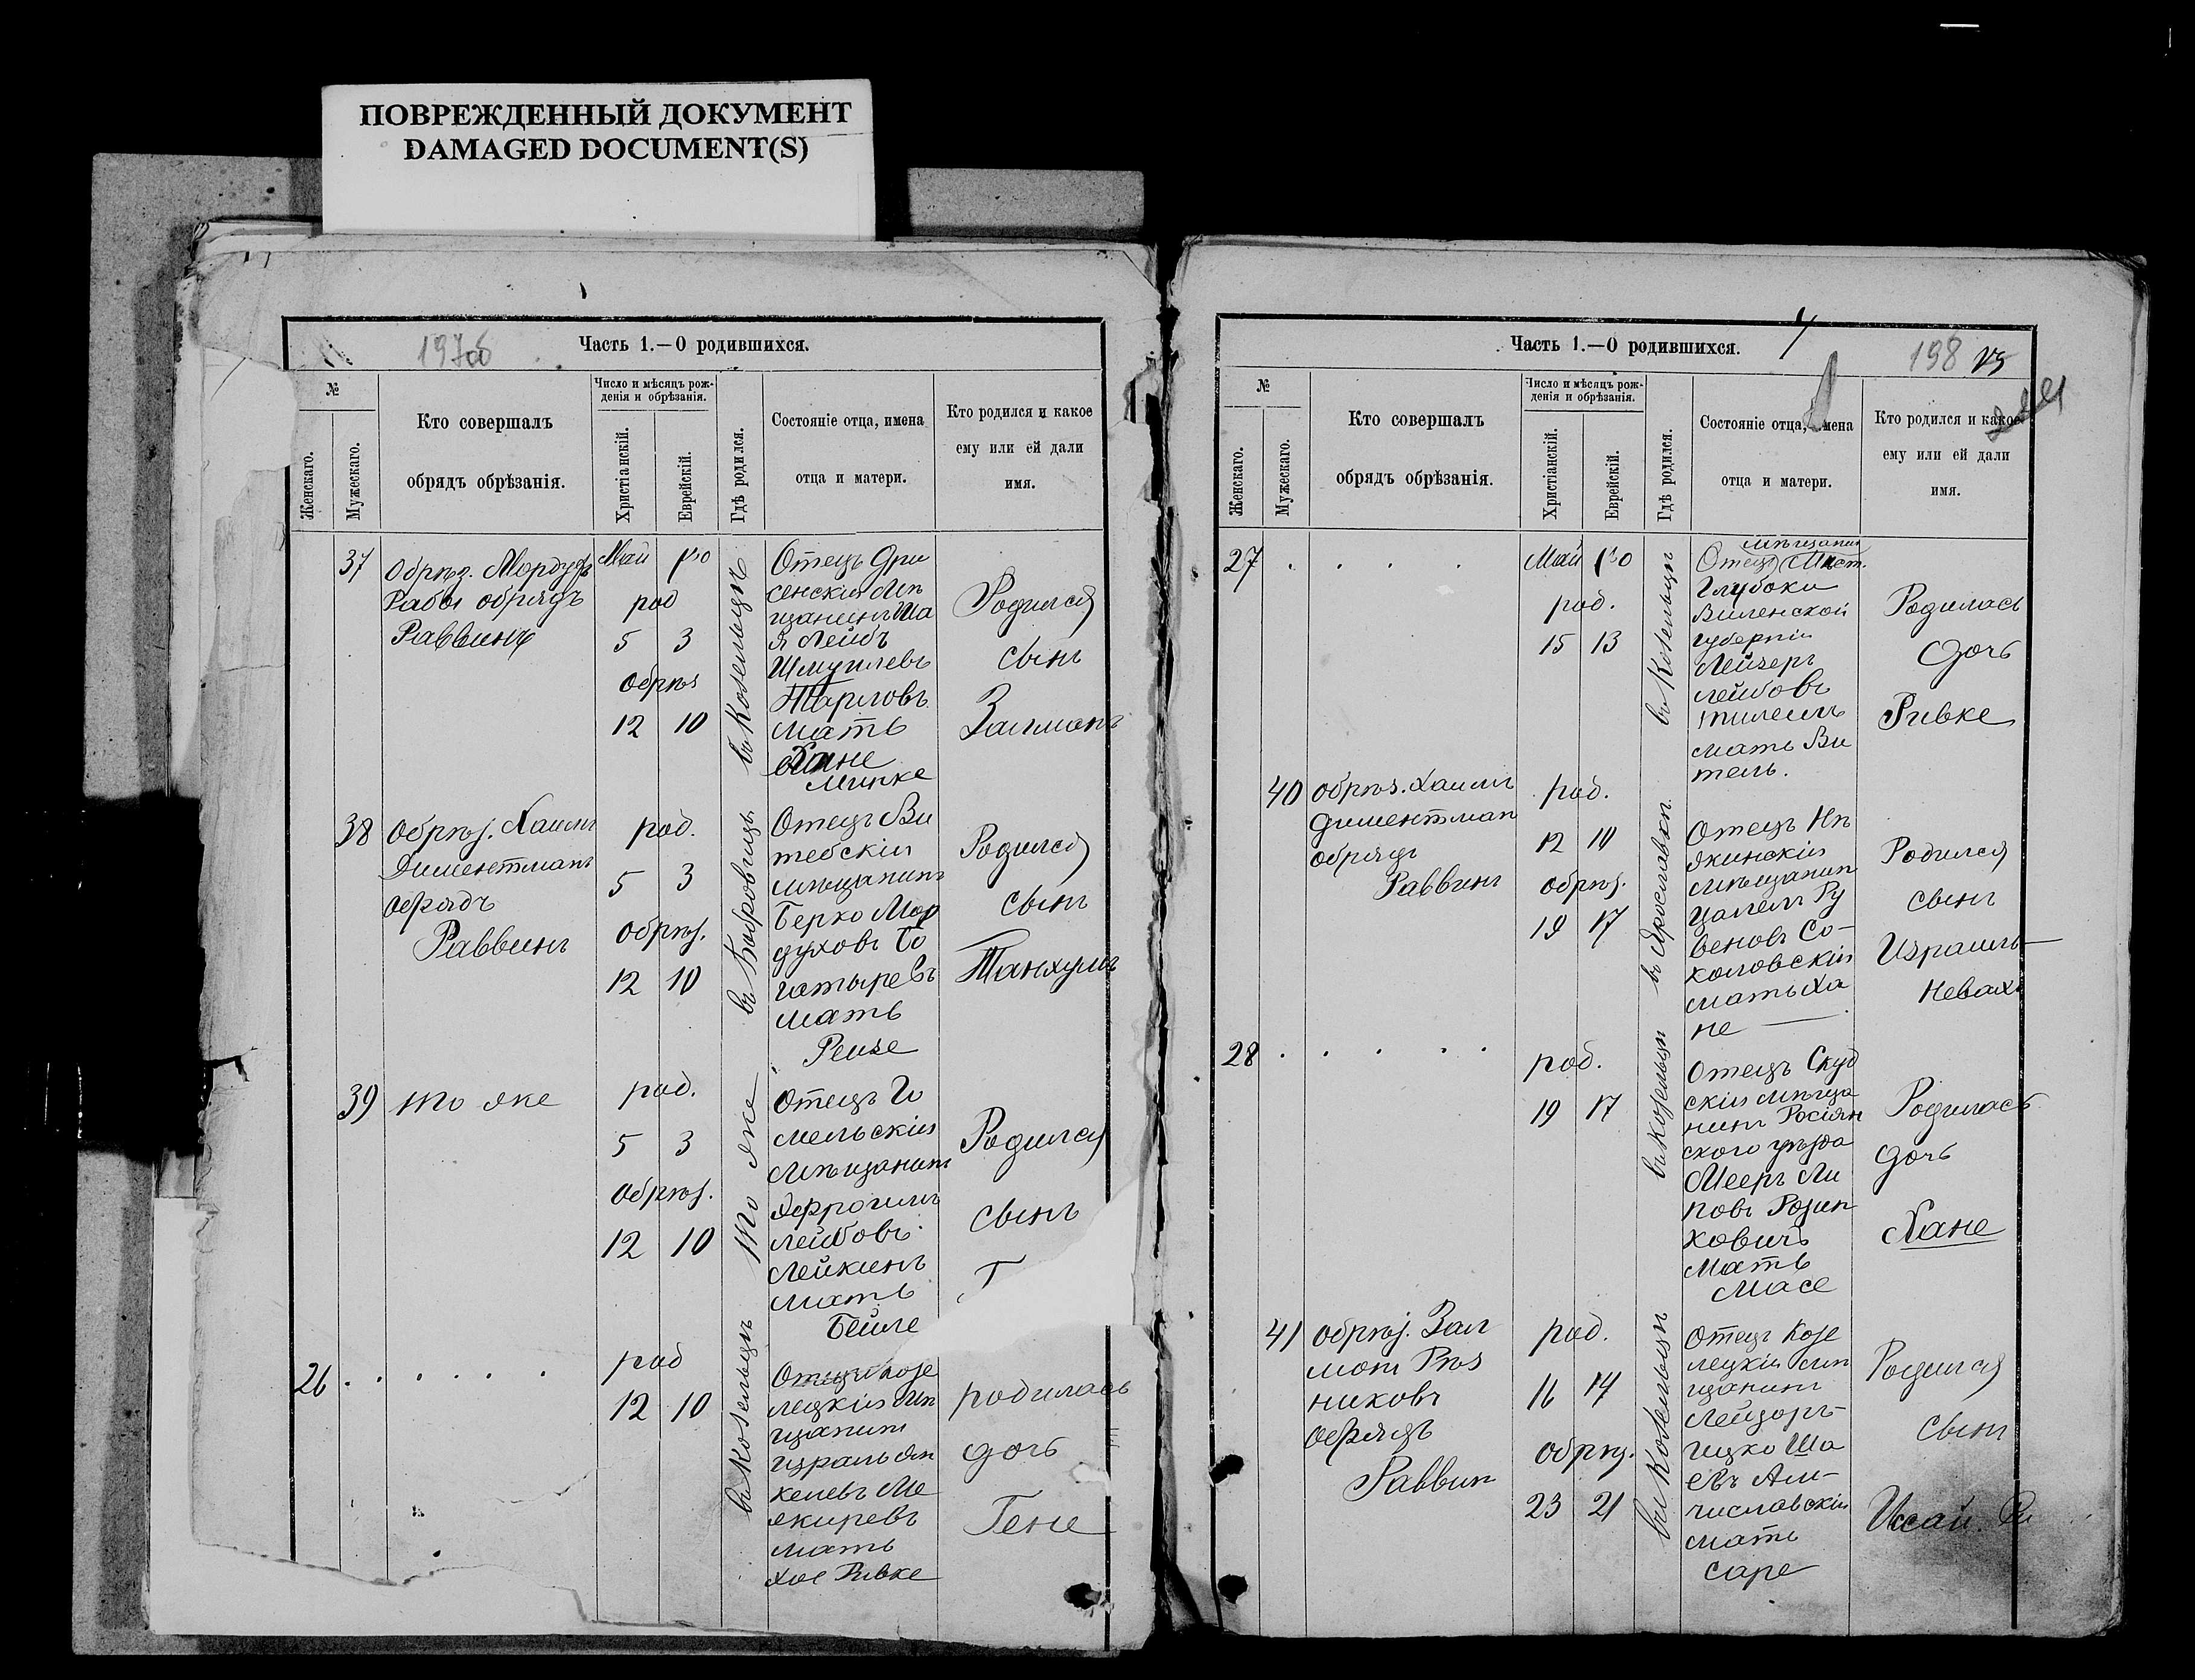 ПОВРЕЖДЕННЫЙ ДОКУМЕНТ
DAMAGED DOCUMENT(S)
197об
Часть 1.—О родившихся.
№
Женскаго.
Мужескаго.
Кто совершалъ
обрядъ обрѣзанія.
Число и мѣсяцъ рож-
денія и обрѣзанія.
Христіанскій.
Еврейскій.
Гдѣ родился.
Состояніе отца, имена
отца и матери.
Кто родился и какое
ему или ей дали
имя.
37
Обрѣз. Мордухъ
Рабой обрядъ
Раввинъ
Май
род
5 3
обрѣз
12 10
въ Козельцѣ
Отецъ Дри
сенскій мѣ
щанинъ Ша
я Лейбъ
Шмуилевъ
мать
Хане
Мирке
Родился
сынъ
Залманъ
38
Обрѣз. Хаимъ
Диментманъ
обрядъ
Раввинъ
род.
5 3
обрѣз.
12 10
въ Бобровицѣ
Отецъ Ви
тебскій
мѣщанинъ
Берко Мор
духовъ Бо
гатыревъ
мать
Рейзе
Родился
сынъ
Танхумъ
39
то же
род.
5 3
обрѣз.
12 10
то же
Отецъ Го
мельскій
мѣщанинъ
Эфроимъ
Лейбовъ
Лейкинъ
мать
Бейле
Родился
сынъ
26
. . . . . .
род
12 10
въ Козельцѣ
Отецъ козе
лецкій мѣ
щанинъ
Израль Ян
келевъ Ме
жиревъ
мать
Хае Ривке
родилась
дочь
Гене
Часть 1.—О родившихся.
198
№
Женскаго.
Мужескаго.
Кто совершалъ
обрядъ обрѣзанія.
Число и мѣсяцъ рож-
денія и обрѣзанія.
Христіанскій.
Еврейскій.
Гдѣ родился.
Состояніе отца, имена
отца и матери.
Кто родился и какое
ему или ей дали
имя.
27
. . . .
Май
род.
15 13
въ Козельцѣ
мѣщанин
Отецъ Мѣст.
Глубоки
Виленской
губерніи
Лейзеръ
Лейбовъ
мать Ви
тель.
Родилась
дочь
Ривке
40
обрѣз. Хаимъ
Диментман
обрядъ
Раввинъ
род.
12 10
обрѣз.
19 17
въ Ярославкѣ
Отецъ Нѣ
жинскій
мѣщанин
Цалелъ Ру
веновъ Со-
коловскій
мать Ха
не
Родился
сынъ
Израиль-
Невахъ
28
. . . . .
род.
19 17
въ Козельцѣ
Отецъ Скуд
скій мѣща
нинъ Росіян
ского уѣзда
Мееръ Ли
повъ Розин
ковичъ
мать
Масе
Родилась
дочь
Хане
41
обрѣз. Зал
ман Рѣз
никовъ
обрядъ
Раввин
род.
16 14
обрѣз.
23 21
въ Козельцѣ
Отецъ Козе
лецкій мѣ
щанинъ
Лейзоръ-
Ицко Ша
евъ Ам-
числавскій
мать
Саре
Родился
сынъ